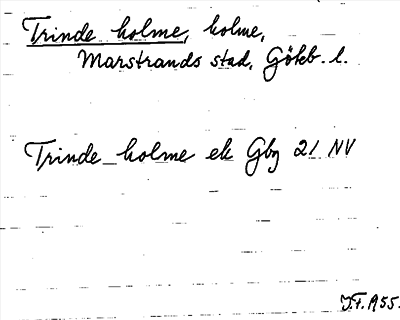 Trinde holme, holme,
Marstrands stad, Göteb. l.
Trinde holme ek Gbg 21 NV
J.F. 1955.